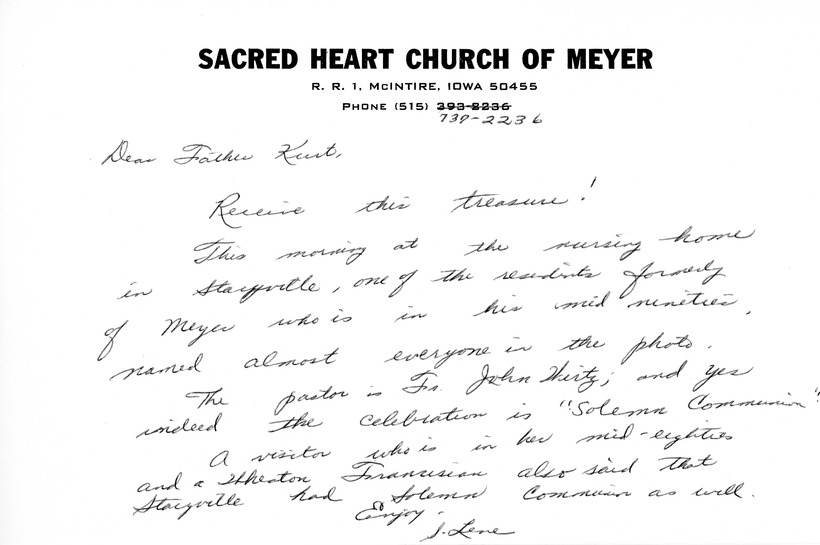 SACRED HEART CHURCH OF MEYER
R. R. 1, McINTIRE, IOWA 50455
PHONE (515) 393-8236
737-2236
Dear Father Kurt,
Receive this treasure!
This morning at the nursing home
in Stacyville, one of the residents formerly
of Meyer who is in his mid nineties,
named almost everyone in the photo.
The pastor is Fr. John Hirtz; and yes
indeed the celebration is "Solemn Communion".
A visitor who is in her mid-eighties
and a Wheaton Franciscan also said that
Stacyville had Solemn Communion as well.
Enjoy.
S. Lene